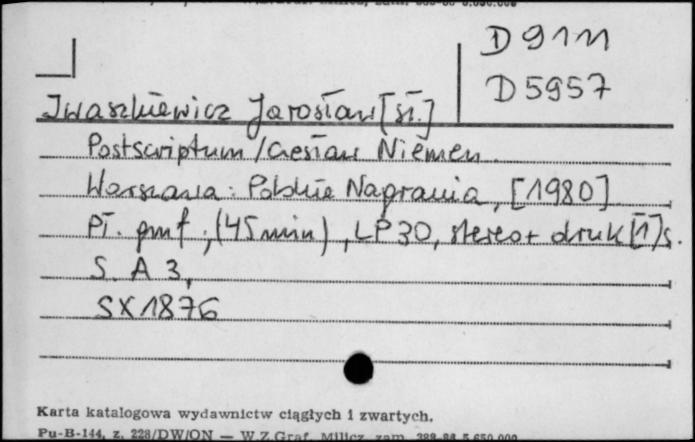 D 9111
D 5957
Iwaszkiewicz Jarosław [sł.]
Postscriptum / Czesław Niemen
Warszawa : Polskie Nagrania, [1980]
Pł. gmf., (45 min), LP 30, stereo + druk [1] s.
S. A 3,
SX 1876
Karta katalogowa wydawnictw ciągłych i zwartych.
Pu-B-144, z. 228/DW/ON — W.Z.Graf. Milicz, zam. 388-86 5.650.000